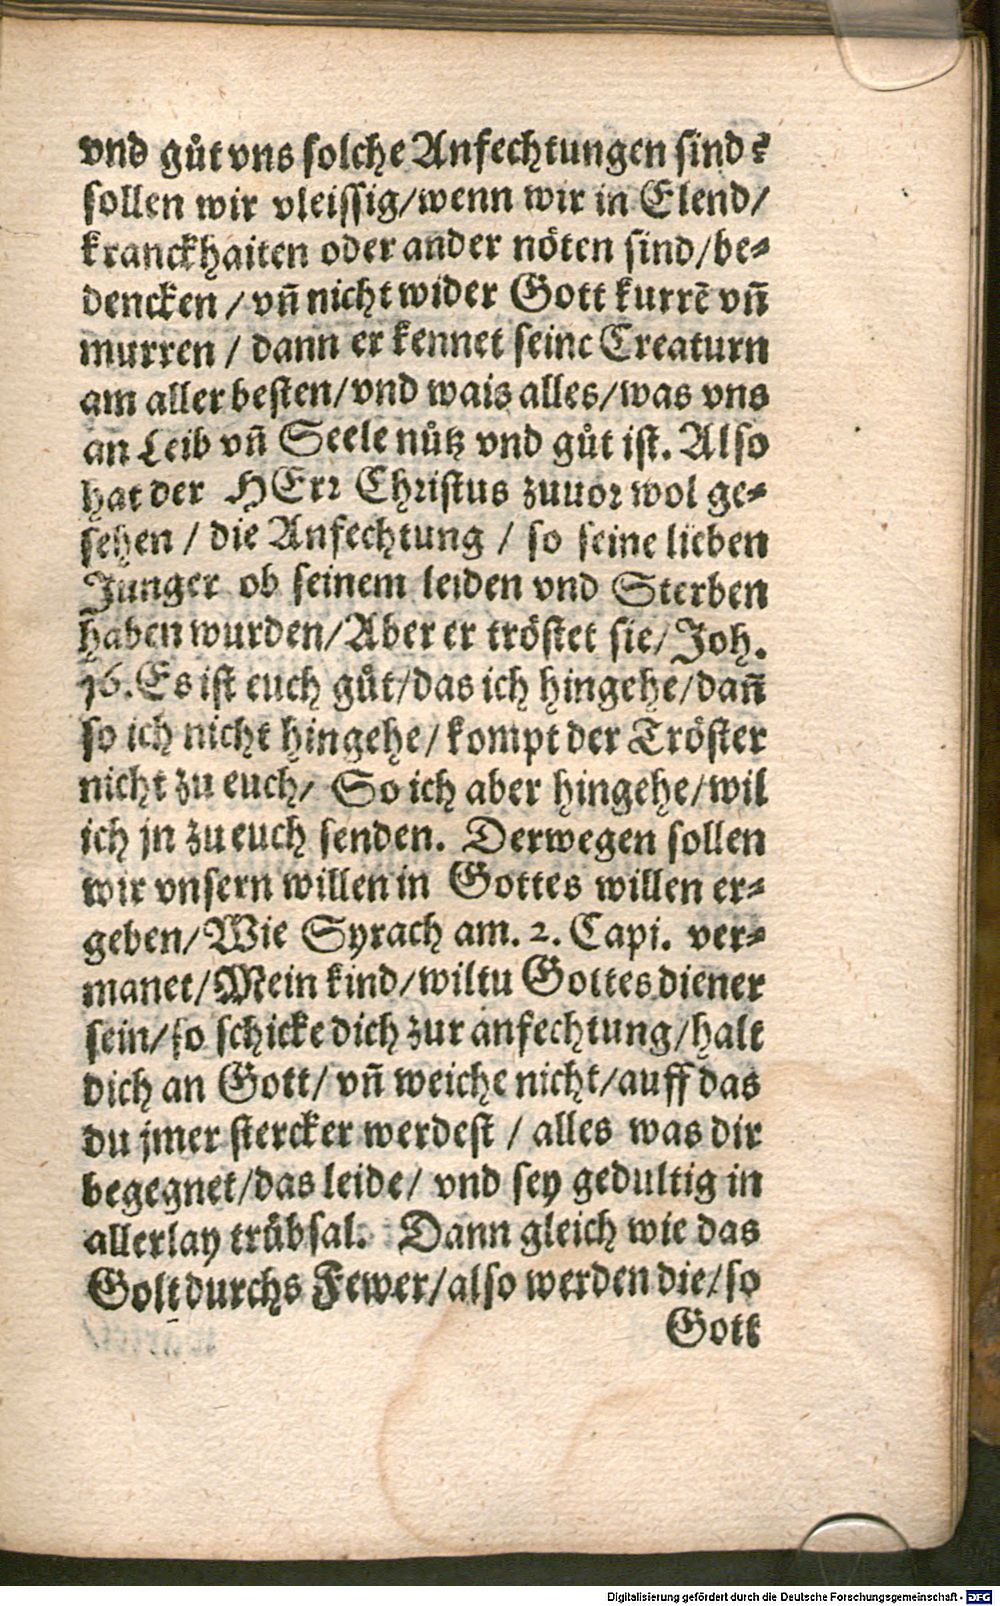 vnd guͦt vns solche Anfechtungen sind?
sollen wir vleissig/wenn wir in Elend/
kranckhaiten oder ander nöten sind/be⸗
dencken / vn̄ nicht wider Gott kurrē vn̄
murren / dann er kennet seine Creaturn
am aller besten/vnd wais alles/was vns
an Leib vn̄ Seele nuͤtz vnd guͦt ist. Also
hat der HErr Christus zuuor wol ge⸗
sehen / die Anfechtung / so seine lieben
Junger ob seinem leiden vnd Sterben
haben wurden/Aber er tröstet sie/Joh.
16. Es ist euch guͦt/das ich hingehe/dan̄
so ich nicht hingehe/kompt der Tröster
nicht zu euch/ So ich aber hingehe/wil
ich jn zu euch senden. Derwegen sollen
wir vnsern willen in Gottes willen er⸗
geben/Wie Syrach am. 2. Capi. ver⸗
manet/Mein kind/wiltu Gottes diener
sein/so schicke dich zur anfechtung/halt
dich an Gott/ vn̄ weiche nicht/auff das
du jmer stercker werdest / alles was dir
begegnet/das leide/ vnd sey gedultig in
allerlay truͤbsal. Dann gleich wie das
Golt durchs Fewer/also werden die/so
Gott
Digitalisierung gefördert durch die Deutsche Forschungsgemeinschaft - DFG